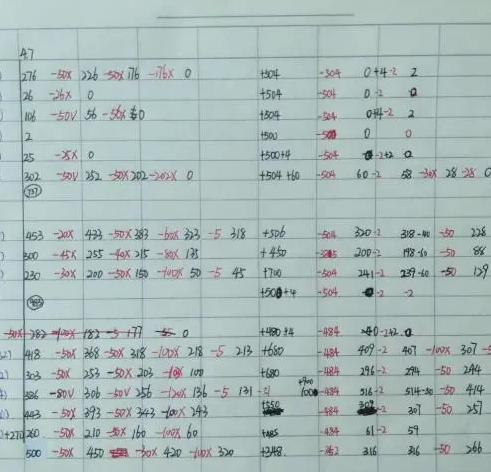 4.7
276 -50X 226 -50X 176 -176X 0 +504 -504 0 +4 -2 2
26 -26X 0 +504 -504 0 -2 0
106 -50V 56 -56X 0 +504 -504 0+4 -2 2
2 +500 -500 0 0
25 -25X 0 +500+4 -504 -2+2 0
302 -50V 252 -50X 202 -202X 0 +504 +60 -504 60 -2 58 -30X 28 -28 0
737
453 -20X 433 -50X 383 -60X 323 -5 318 +506 -504 320 -2 318 -40 -50 228
300 -45X 255 -40X 215 -80X 135 +450 200 -2 198 -60 -50 88
230 -30X 200 -50X 150 -100X 50 -5 45 +700 -504 241 -2 239 -60 -50 129
+500+4 -504 -2 -2
-50X 282 -100X 182 -5 177 0 +480+4 -484 0 -2+2 0
418 -50X 368 -50X 318 -100X 218 -5 213 +680 -484 409 -2 407 -100X 307
303 -50X 253 -50X 203 100 +680 -484 296 -2 294 -50 244
386 -80V 306 -50V 256 -120X 136 -5 131 -484 516 -2 514 -50 -50 414
443 -50X 393 -50X 343 -100X 243 -484 307 -50 257
+270 260 -50X 210 -50X 160 -100X 60 +485 -484 61 -2 59
500 -50X 450 -30X 420 -100X 320 +348 316 316 -50 266